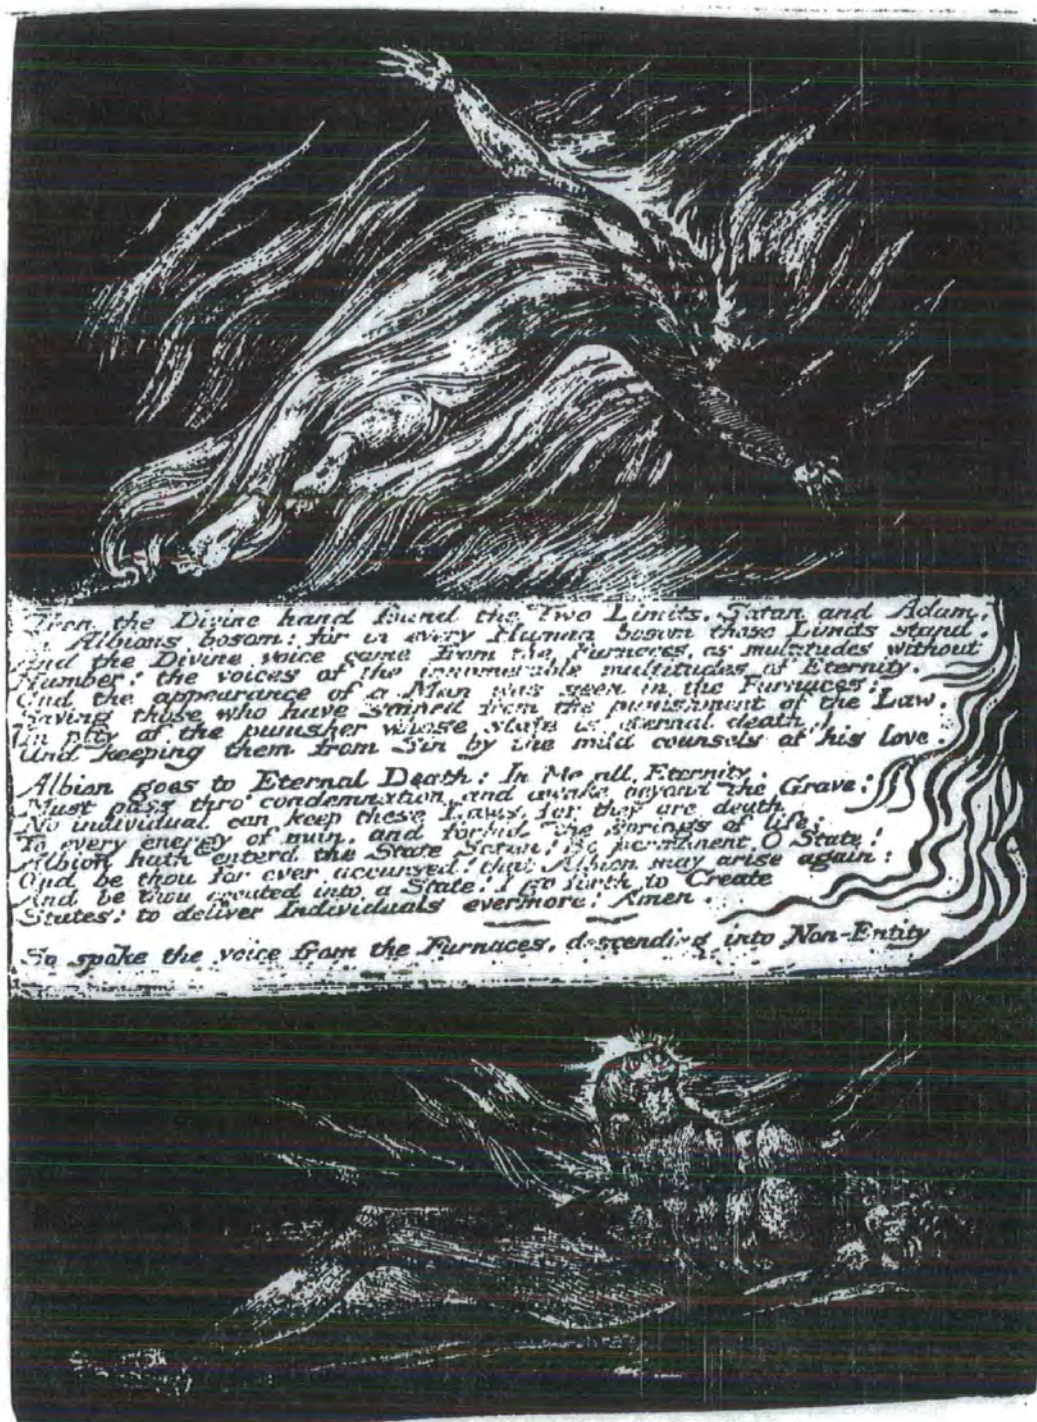 Then the Divine hand found the Two Limits, Satan and Adam,
In Albions bosom: for in every Human bosom those Limits stand.
And the Divine voice came from the Furnaces, as multitudes without
Number: the voices of the innumerable multitudes of Eternity.
And the appearance of a Man was seen in the Furnaces;
Saving those who have sinned from the punishment of the Law,
(In pity of the punisher whose state is eternal death,)
And keeping them from Sin by the mild counsels of his love.
Albion goes to Eternal Death: In Me all Eternity.
Must pass thro' condemnation, and awake beyond the Grave:
No individual can keep these Laws, for they are death
To every energy of man, and forbid the springs of life;
Albion hath enterd the State Satan! Be permanent O State!
And be thou for ever accursed! that Albion may arise again:
And be thou created into a State! I go forth to Create
States: to deliver Individuals evermore! Amen.
So spoke the voice from the Furnaces, descending into Non-Entity